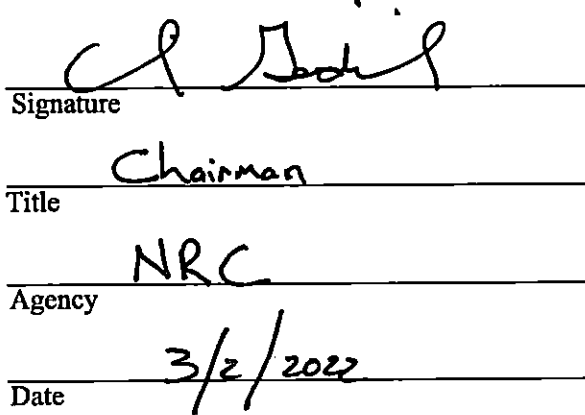 Signature
Chairman
Title
NRC
Agency
3/2/2022
Date